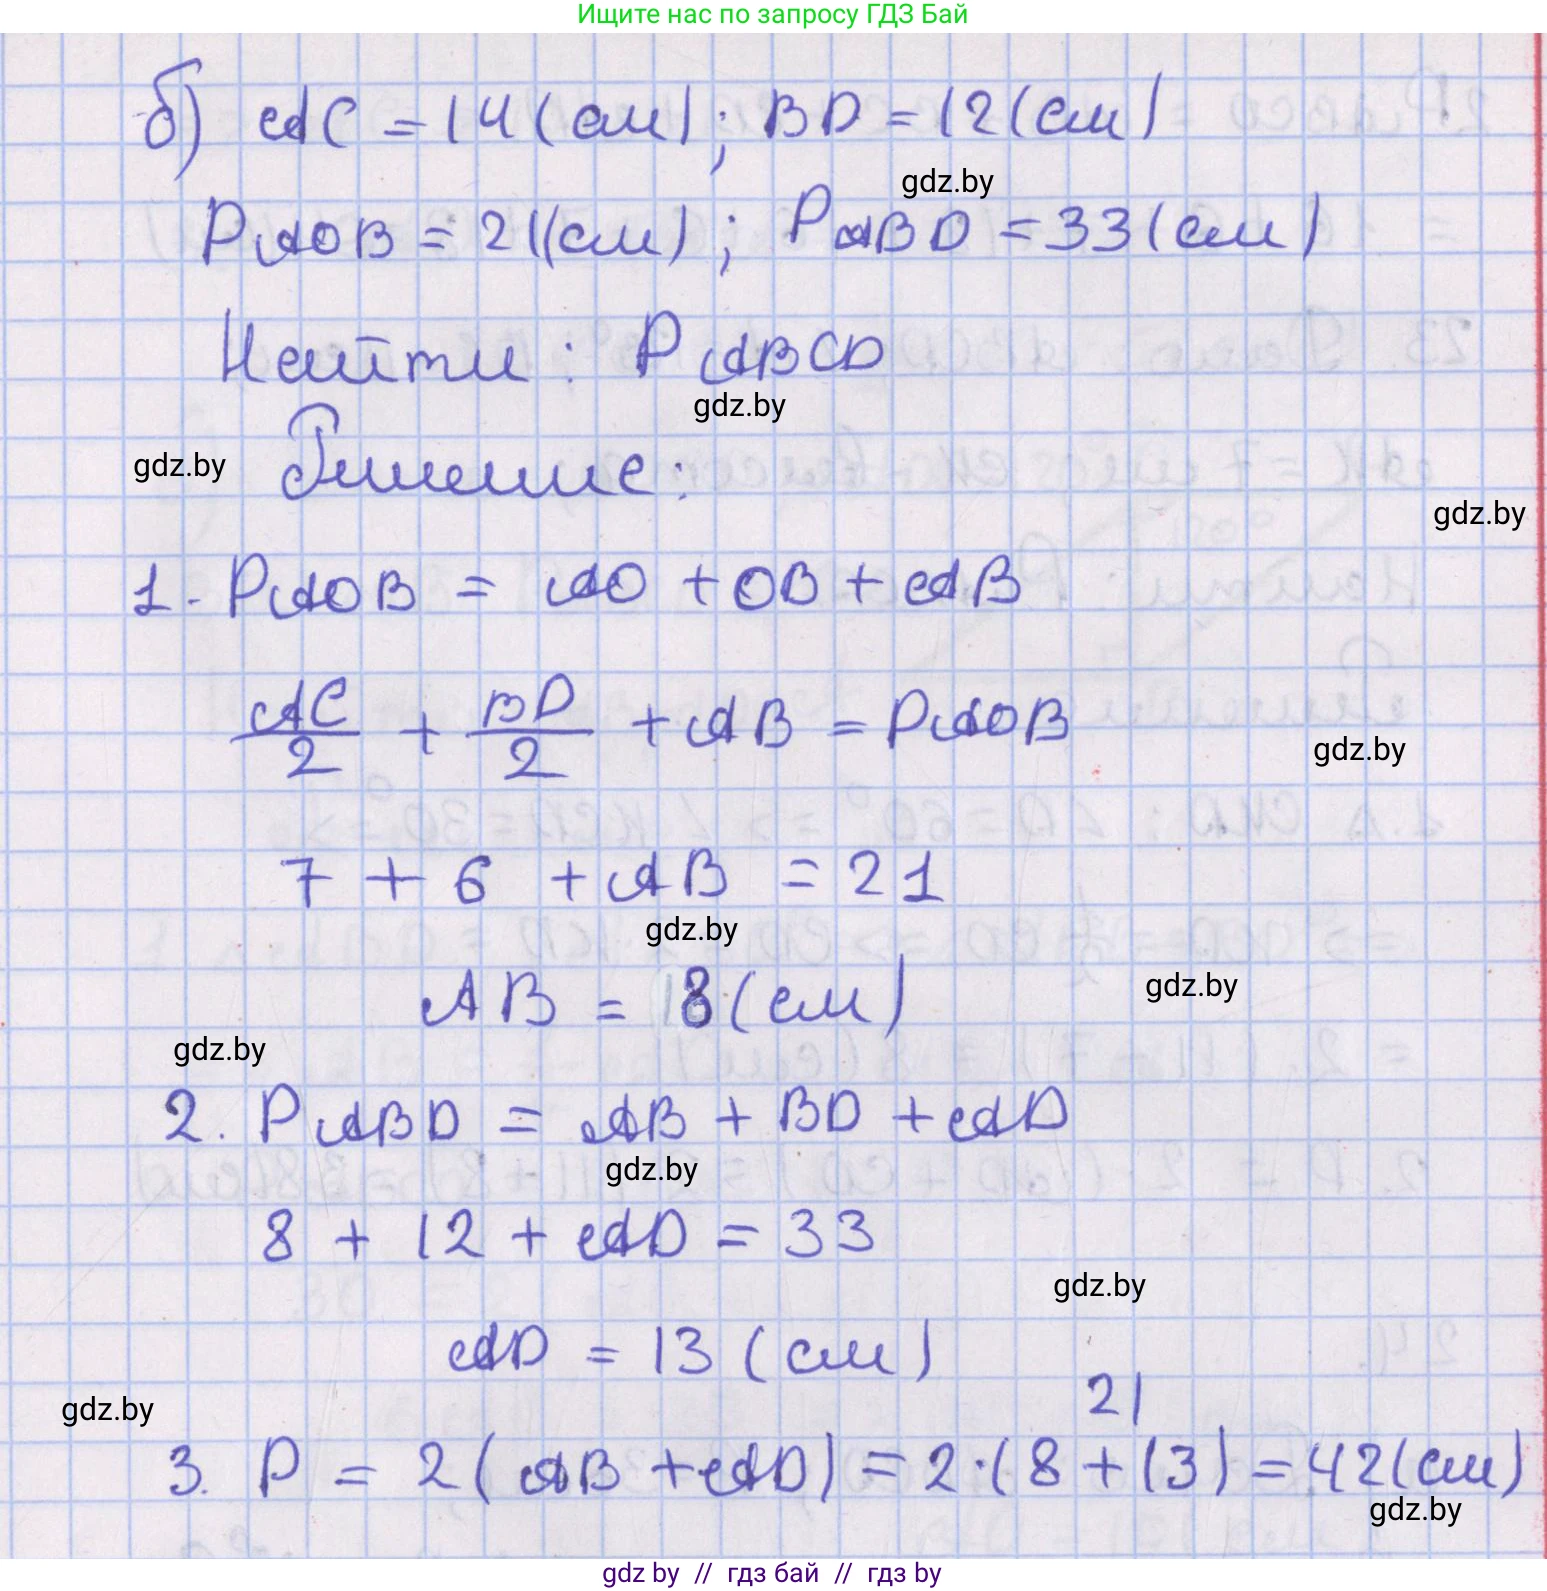 Ищите нас по запросу ГДЗ Бай
б) AC = 14 (см); BD = 12 (см)
gdz.by
PAOB = 21 (см); PABD = 33 (см)
Найти: PABCD
gdz.by
gdz.by
Решение:
gdz.by
1. PAOB = AO + OB + AB
AC/2 + BD/2 + AB = PAOB
gdz.by
7 + 6 + AB = 21
gdz.by
AB = 8 (см)
gdz.by
gdz.by
2. PABD = AB + BD + AD
gdz.by
8 + 12 + AD = 33
gdz.by
AD = 13 (см)
21
gdz.by
3. P = 2(AB + AD) = 2·(8 + 13) = 42 (см)
gdz.by
gdz.by // гдз бай // гдз by